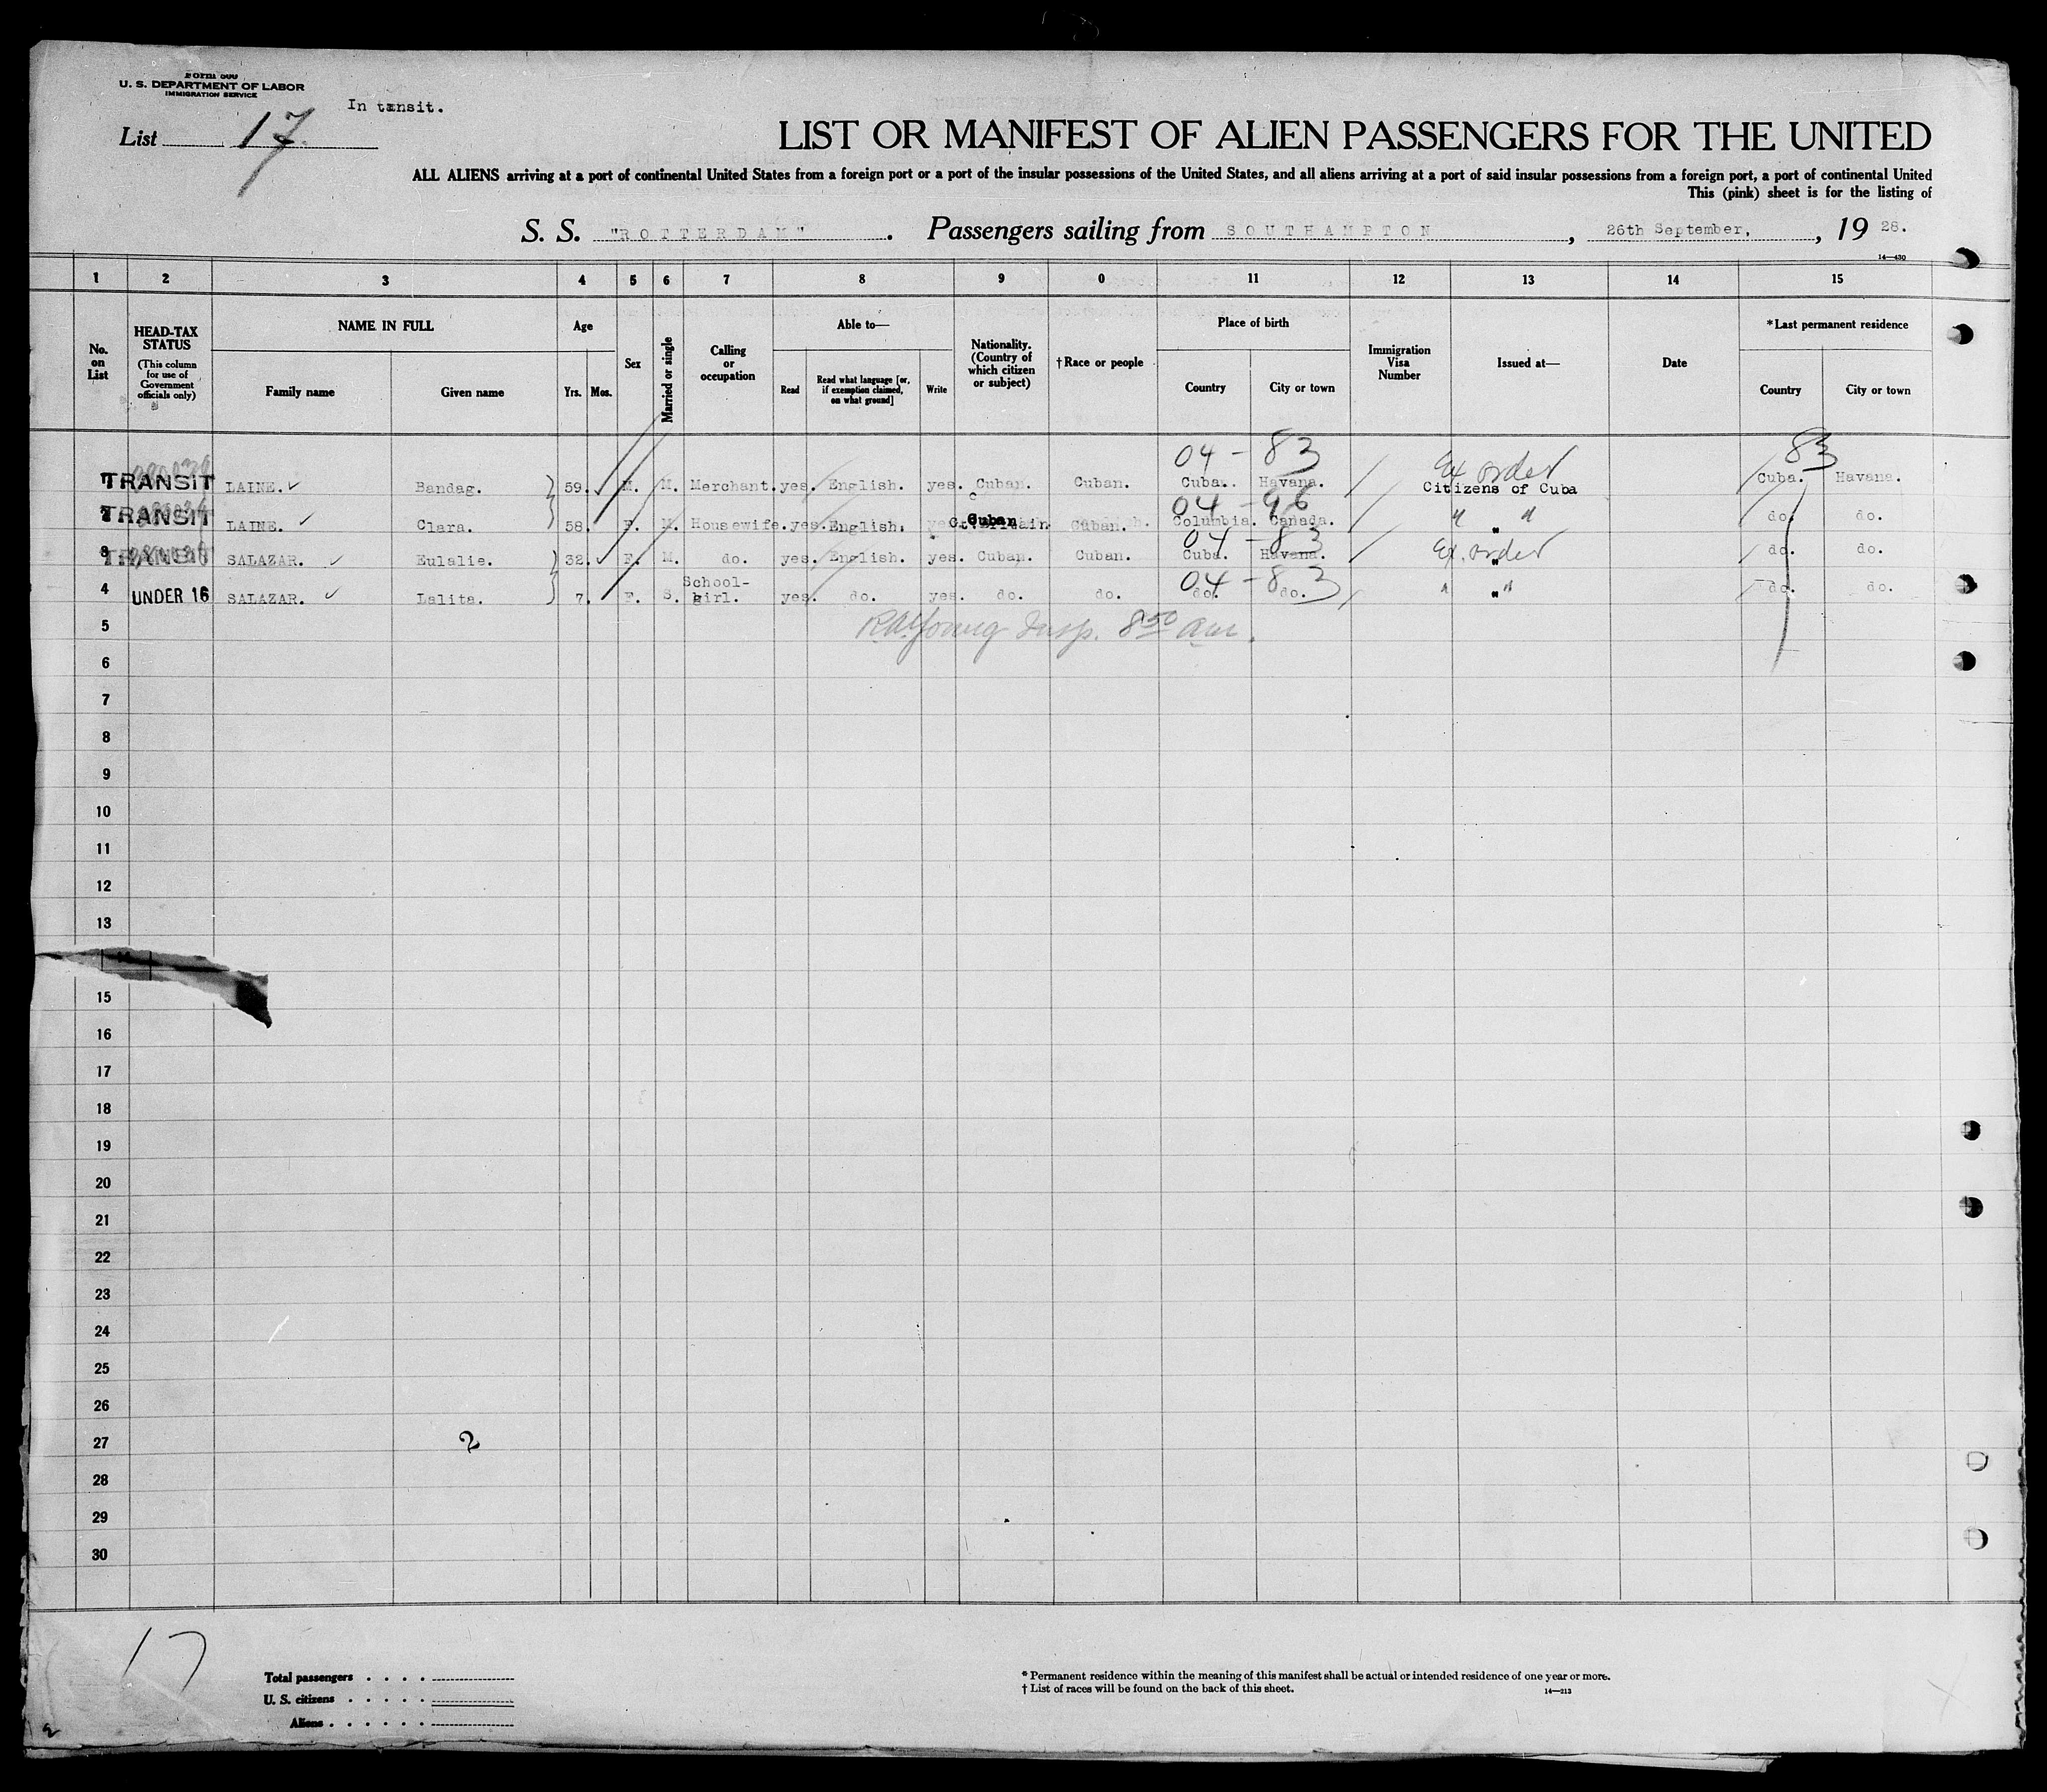 Form 500
U. S. DEPARTMENT OF LABOR
IMMIGRATION SERVICE
In transit.
List 17
LIST OR MANIFEST OF ALIEN PASSENGERS FOR THE UNITED
ALL ALIENS arriving at a port of continental United States from a foreign port or a port of the insular possessions of the United States, and all aliens arriving at a port of said insular possessions from a foreign port, a port of continental United
This (pink) sheet is for the listing of
S. S. "ROTTERDAM". Passengers sailing from SOUTHAMPTON, 26th September, 1928.
14—430
1 2 3 4 5 6 7 8 9 0 11 12 13 14 15
No. on List
HEAD-TAX STATUS
(This column for use of Government officials only)
NAME IN FULL
Family name Given name
Age
Yrs. Mos.
Sex
Married or single
Calling or occupation
Able to—
Read Read what language [or, if exemption claimed, on what ground] Write
Nationality. (Country of which citizen or subject)
†Race or people
Place of birth
Country City or town
Immigration Visa Number
Issued at—
Date
*Last permanent residence
Country City or town
04 - 83 Ex order 83
TRANSIT LAINE. Bandag. 59. M. M. Merchant. yes. English. yes. Cuban. Cuban. Cuba. Havana. Citizens of Cuba Cuba. Havana.
04 - 96
TRANSIT LAINE. Clara. 58. F. M. Housewife. yes. English. Cuban Cuban. Columbia. Canada. " " " do. do.
04 - 83
3 TRANSIT SALAZAR. Eulalie. 32. F. M. do. yes. English. yes. Cuban. Cuban. Cuba. Havana. Ex. order " do. do.
04 - 83
4 UNDER 16 SALAZAR. Lalita. 7. F. S. School-girl. yes. do. yes. do. do. do. do. " " " do. do.
5 Insp. 8 50 am.
6
7
8
9
10
11
12
13
15
16
17
18
19
20
21
22
23
24
25
26
27 2
28
29
30
17
Total passengers
U. S. citizens
Aliens
* Permanent residence within the meaning of this manifest shall be actual or intended residence of one year or more.
† List of races will be found on the back of this sheet.
14—213